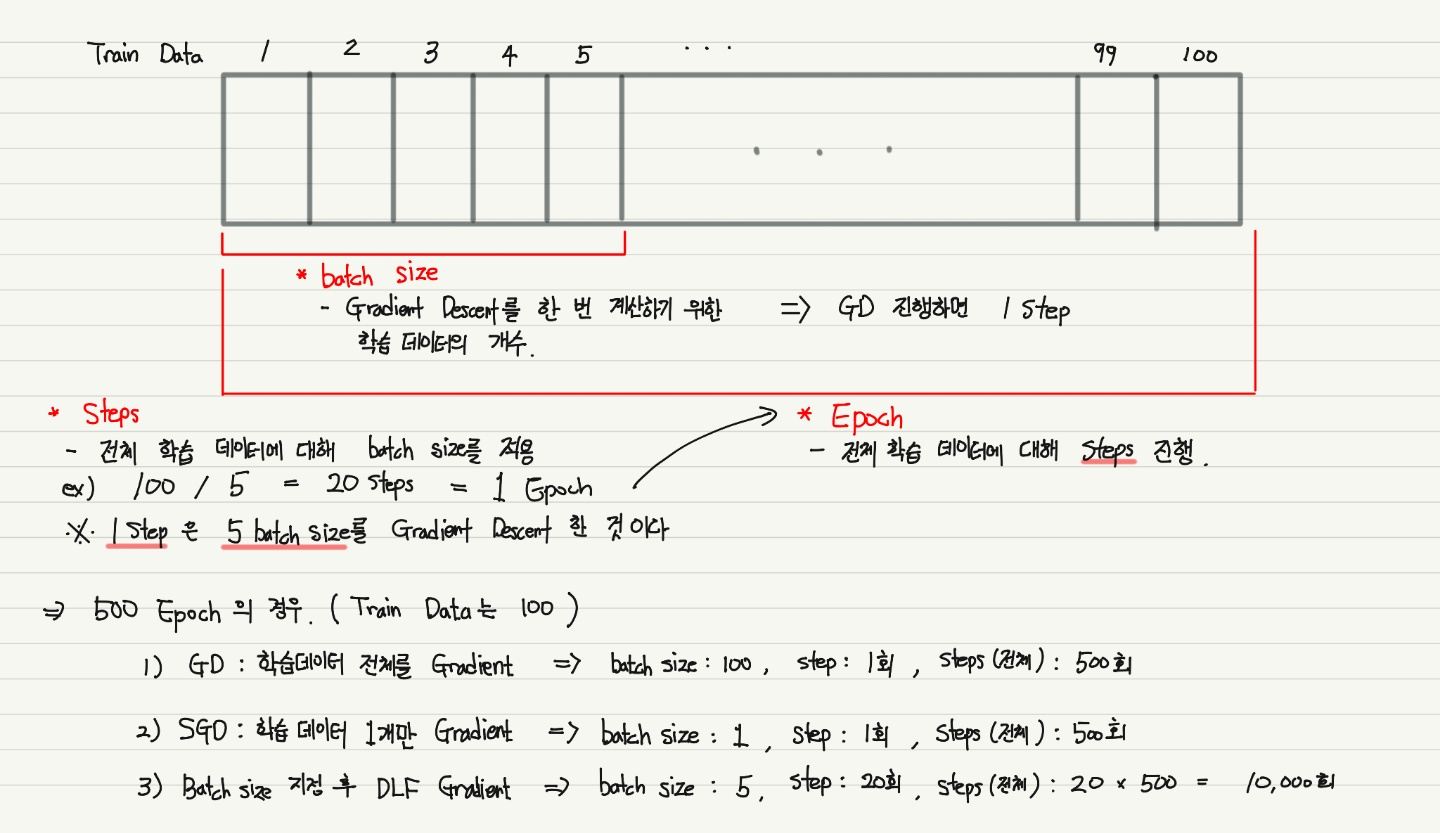 Train Data 1 2 3 4 5 ... 99 100
* batch size
- Gradient Descent를 한 번 계산하기 위한 => GD 진행하면 1 Step
학습 데이터의 개수.
* Steps
- 전체 학습 데이터에 대해 batch size를 적용
ex) 100 / 5 = 20 steps = 1 Epoch
※ 1 Step 은 5 batch size를 Gradient Descent 한 것이다
* Epoch
- 전체 학습 데이터에 대해 Steps 진행.
=> 500 Epoch 의 경우. ( Train Data는 100 )
1) GD : 학습데이터 전체를 Gradient => batch size : 100 , step : 1회 , steps (전체) : 500회
2) SGD : 학습 데이터 1개만 Gradient => batch size : 1 , step : 1회 , steps (전체) : 500회
3) Batch size 지정 후 DLF Gradient => batch size : 5 , step : 20회 , steps (전체) : 20 × 500 = 10,000회